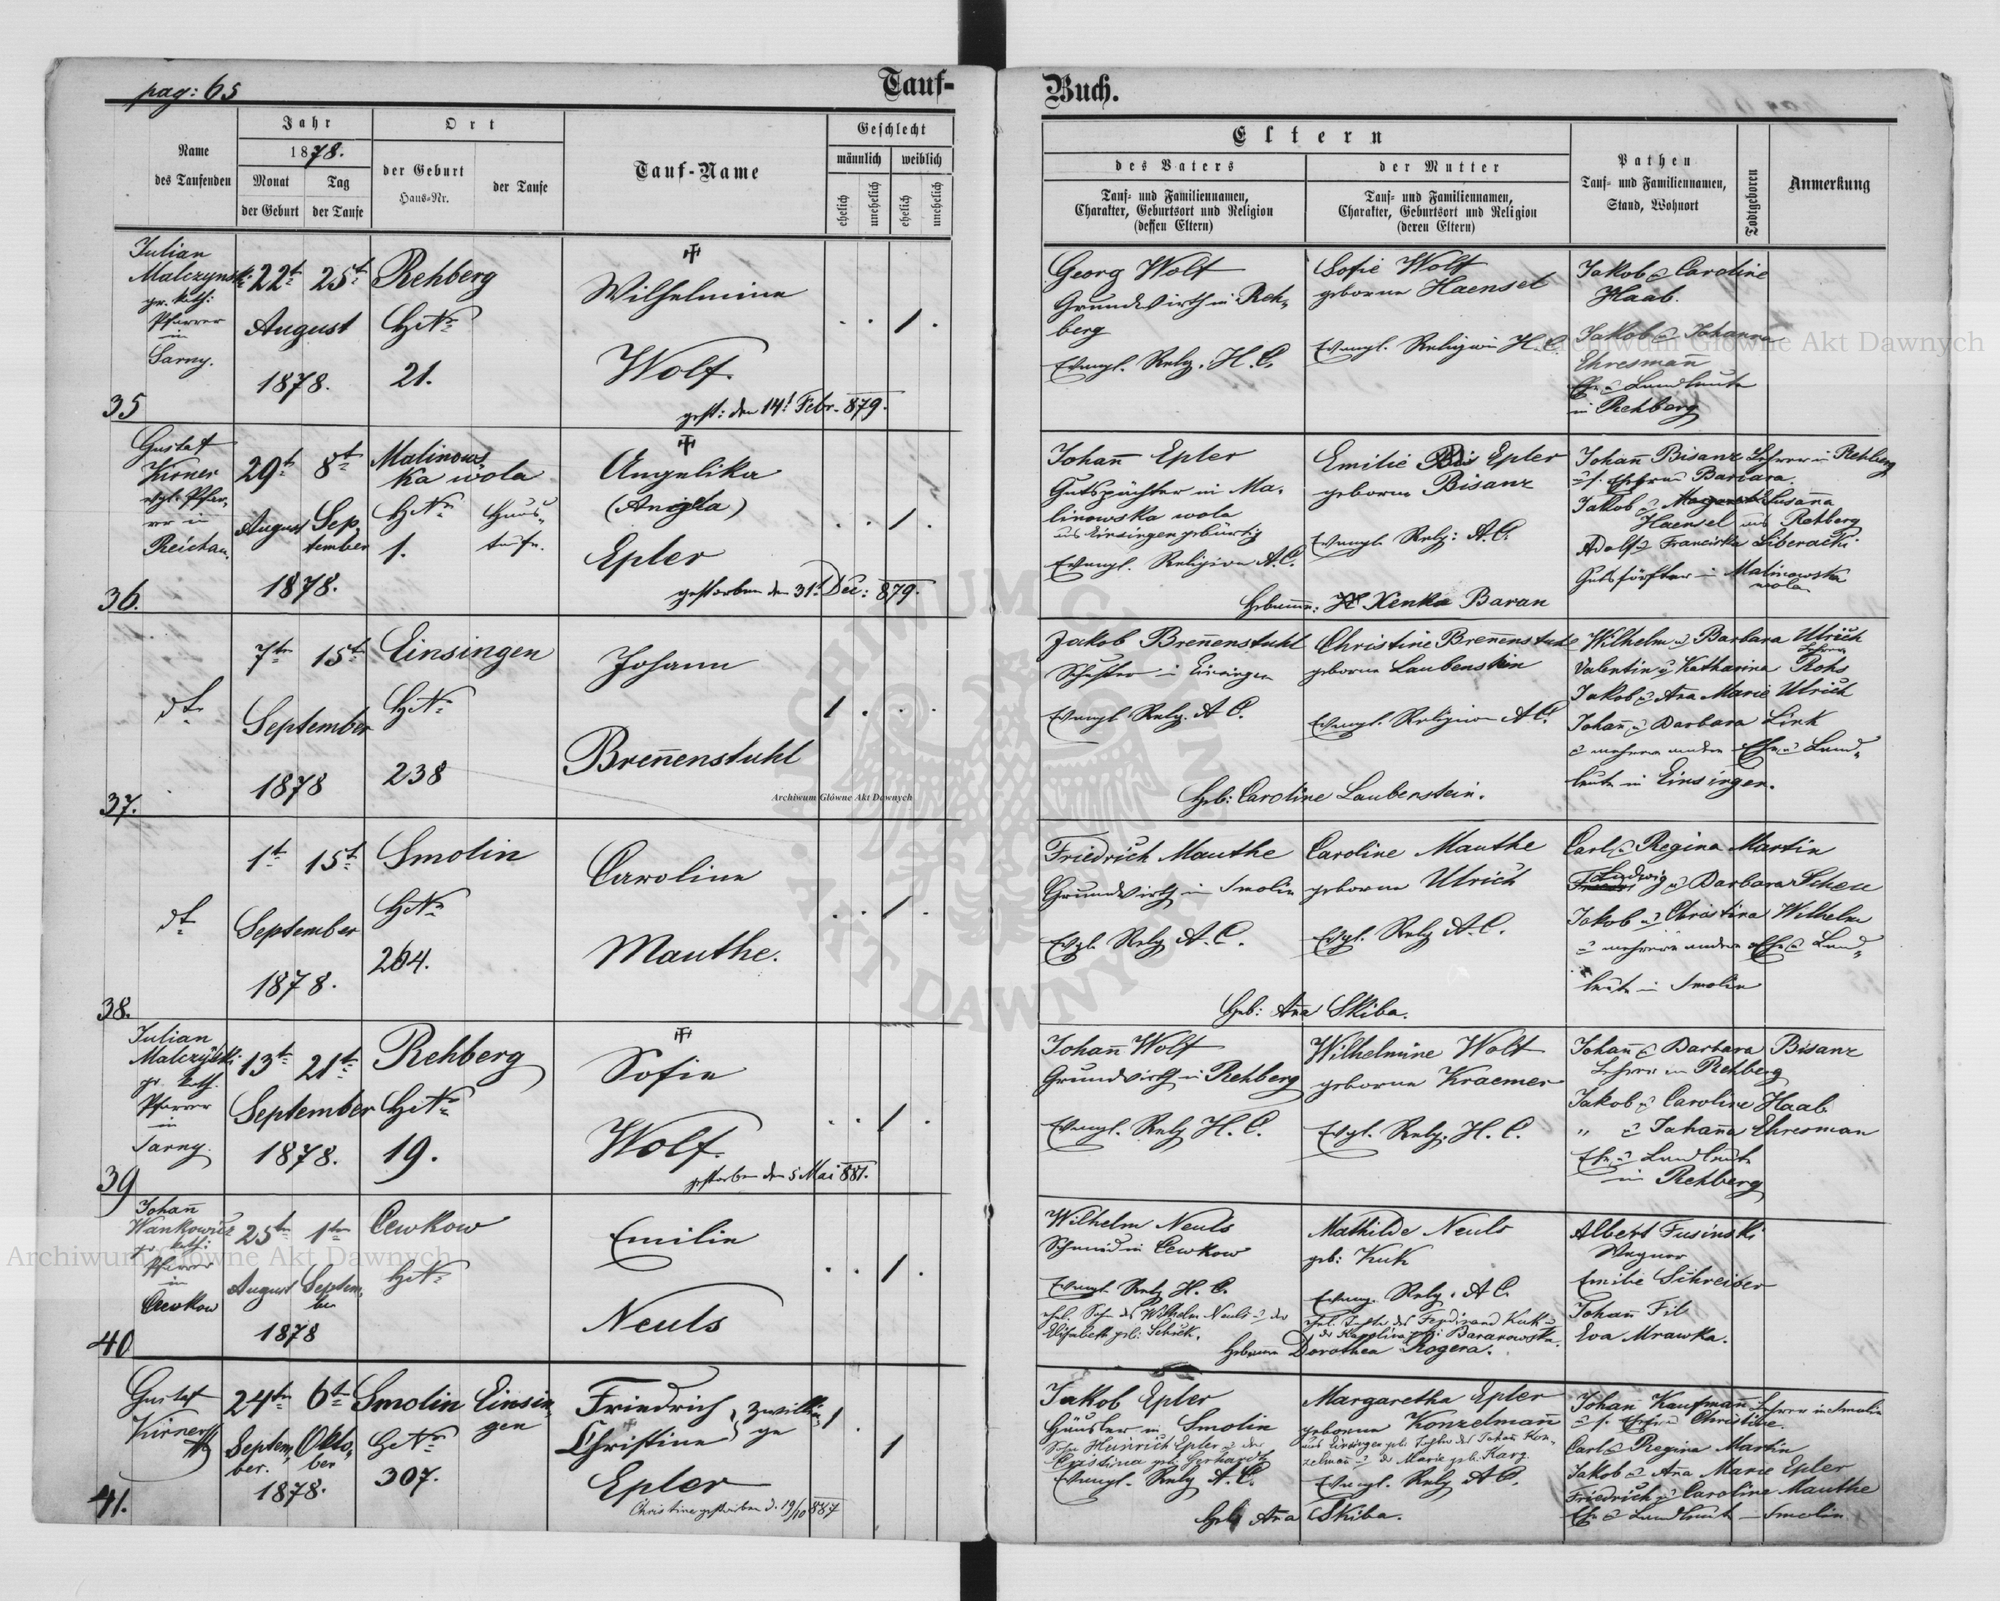 pag: 65
Tauf-
Buch.
Name
des Taufenden
Jahr
1878.
Monat
Tag
der Geburt
der Taufe
Ort
der Geburt
Haus-Nr.
der Taufe
Tauf-Name
Geschlecht
männlich
weiblich
ehelich
unehelich
ehelich
unehelich
Eltern
des Vaters
Tauf- und Familiennamen,
Charakter, Geburtsort und Religion
(dessen Eltern)
der Mutter
Tauf- und Familiennamen,
Charakter, Geburtsort und Religion
(deren Eltern)
Pathen
Tauf- und Familiennamen,
Stand, Wohnort
Todtgeboren
Anmerkung
35
Julian
Malczynski
gr. kath:
Pfarrer
in
Sarny.
22t 25t
August
1878.
Rehberg
HNr
21.
Wilhelmine
Wolf.
gest: den 14t Febr. 879.
1
Georg Wolf
Grundwirth in Reh-
berg
Evangl. Relg. H.C.
Sofie Wolf
geborne Haensel
Evangl. Religion H.C.
Jakob u Caroline
Haab.
Jakob u Johanna
Ehresmann̄
Ehe u Landleute
in Rehberg
36.
Gustaf
Kirner
evgl. Pfar-
rer in
Reichau.
29t 8t
August Sep-
tember
1878.
Malinows
ka wola
HNr
1.
Haus-
taufe.
Angelika
(Angela)
Epler
gestorben den 31t Dec: 879.
1
Johan̄ Epler
Gutspächter in Ma-
linowska wola
aus Einsingen gebürtig
Evangl. Religion A.C.
Emilie Epler
geborne Bisanz
Evangl. Relg: A.C.
Hebamme: Xenka Baran
Johan̄ Bisanz Lehrer in Rehberg
u s. Ehefrau Barbara.
Jakob u Susana
Haensel aus Rehberg
Adolf u Franciska Liberacki
Gutsförster in Malinowska
wola
37.
dt
7t 15t
September
1878
Einsingen
HNr
238
Johann
Bren̄enstuhl
1
Jakob Bren̄enstuhl
Schuster in Einsingen
Evangl. Relg. A.C.
Christine Bren̄enstuhl
geborne Laubenstein
Evangl. Religion A.C.
Heb: Caroline Laubenstein.
Wilhelm u Barbara Ulrich
Valentin u Katharina Rohs
Jakob u Ana Marie Ulrich
Johan̄ u Barbara Link
u mehrere andere Ehe u Land-
leute in Einsingen.
38.
dt
1t 15t
September
1878.
Smolin
HNr
264.
Caroline
Mauthe.
1
Friedrich Mauthe
Grundwirth in Smolin
Evgl. Relg A.C.
Caroline Mauthe
geborne Ulrich
Evgl. Relg A.C.
Heb: Ana Skiba.
Carl u Regina Martin
Ludwig u Barbara Scheu
Jakob u Christina Wilhelm
u mehrere andere Ehe u Land-
leute in Smolin
39
Julian
Malczyński
gr. kath.
Pfarrer
in
Sarny.
13t 21t
September
1878.
Rehberg
HNr
19.
Sofie
Wolf.
gestorben den 5 Mai 881.
1
Johan̄ Wolf
Grundwirth in Rehberg
Evangl. Relg H.C.
Wilhelmine Wolf
geborne Kraemer
Evgl. Relg. H.C.
Johan̄ u Barbara Bisanz
Lehrer in Rehberg
Jakob u Caroline Haab
" u Johan̄a Ehresman
Ehe u Landleute
in Rehberg
40
Johan̄
Wankowicz
gr. kath:
Pfarrer
in
Cewkow
25t 1t
August Septem-
ber
1878
Cewkow
HNr
Emilie
Neuls
1
Wilhelm Neuls
Schmid in Cewkow
Evangl. Relg H.C.
ehel. Sohn des Wilhelm Neuls u der
Elisabeth geb: Schuck.
Mathilde Neuls
geb: Kuk
Evang. Relg. A.C.
ehel. Tochter des Ferdinand Kuk u
der Karolina geb: Baranowska.
Hebamme Dorothea Rogera.
Albert Fusinski
Wagner
Emilie Schreiber
Johan̄ Fil
Eva Mrawka.
41.
Gustaf
Kirner
24t 6t
Septem- Okto-
ber. ber
1878.
Smolin
HNr
307.
Einsin-
gen
Friedrich
Christine
Zwillin-
ge
Epler
Christine gestorben d. 19/10 887
1
1
Jakob Epler
Häusler in Smolin
Sohn Heinrich Epler u der
Cristina geb: Gerhardt
Evangl. Relg A.C.
Margaretha Epler
geborne Konzelman̄
aus Einsingen geb. Tochter des Johan̄ Kon-
zelman̄ u der Marie geb. Karg.
Evangl. Relg A.C.
Heb. Ana Skiba.
Johan̄ Kaufman̄ Lehrer in Smolin
u s. Ehefrau Christine.
Carl u Regina Martin
Jakob u Ana Marie Epler
Friedrich u Caroline Mauthe
Ehe u Landleute in Smolin.
Archiwum Główne Akt Dawnych
Archiwum Główne Akt Dawnych
Archiwum Główne Akt Dawnych
ARCHIWUM GŁÓWNE AKT DAWNYCH